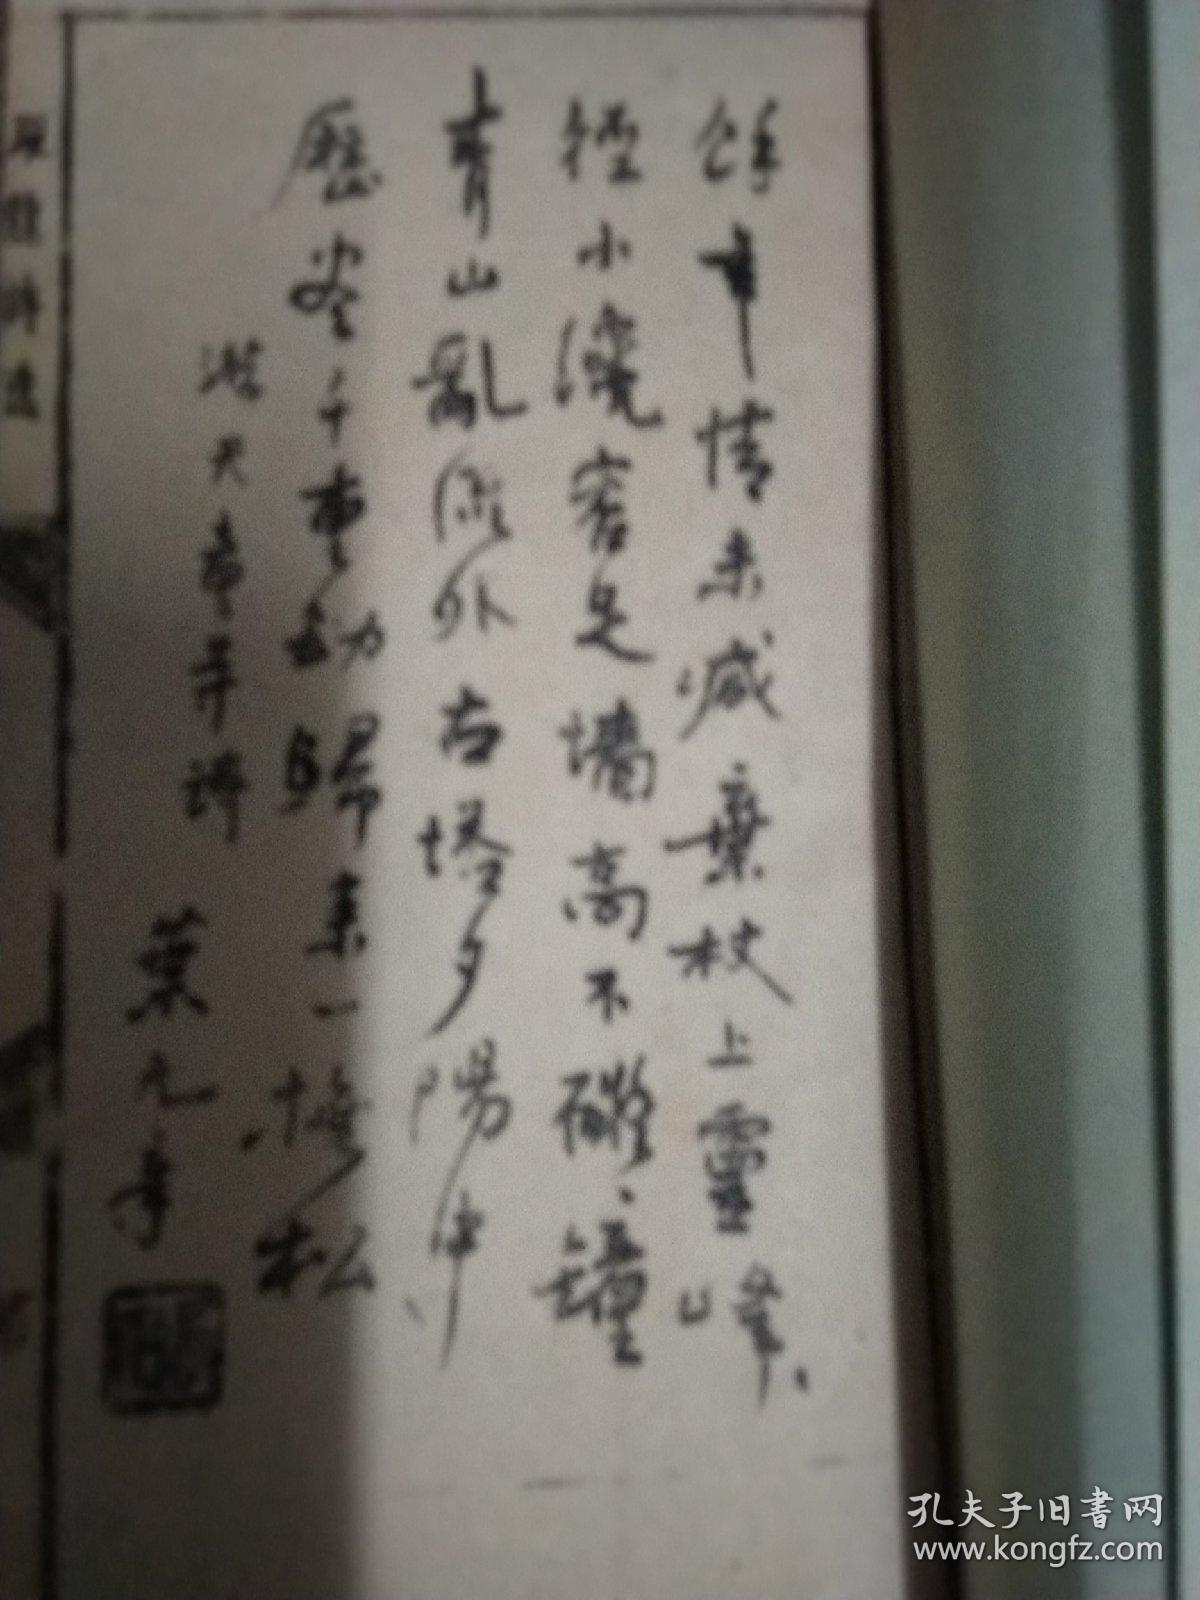 餘年情未减棄杖上靈峰、
徑小纔容足墻高不礙、鐘
青山亂流外古塔夕陽中、
歷盡千重劫歸来一撫松
游天童寺诗 葉元章
孔夫子旧書网
www.kongfz.com